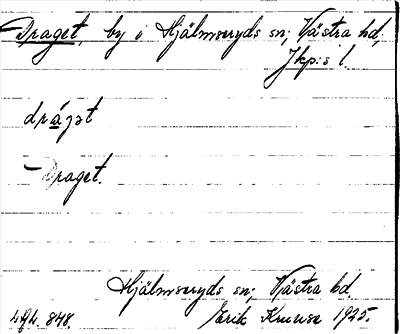 Draget, by i Hjälmseryds sn; Västra hd,
Jkp:s l.
drág̣ət
Draget.
Hjälmseryds sn; Västra hd
Erik Kruuse 1925.